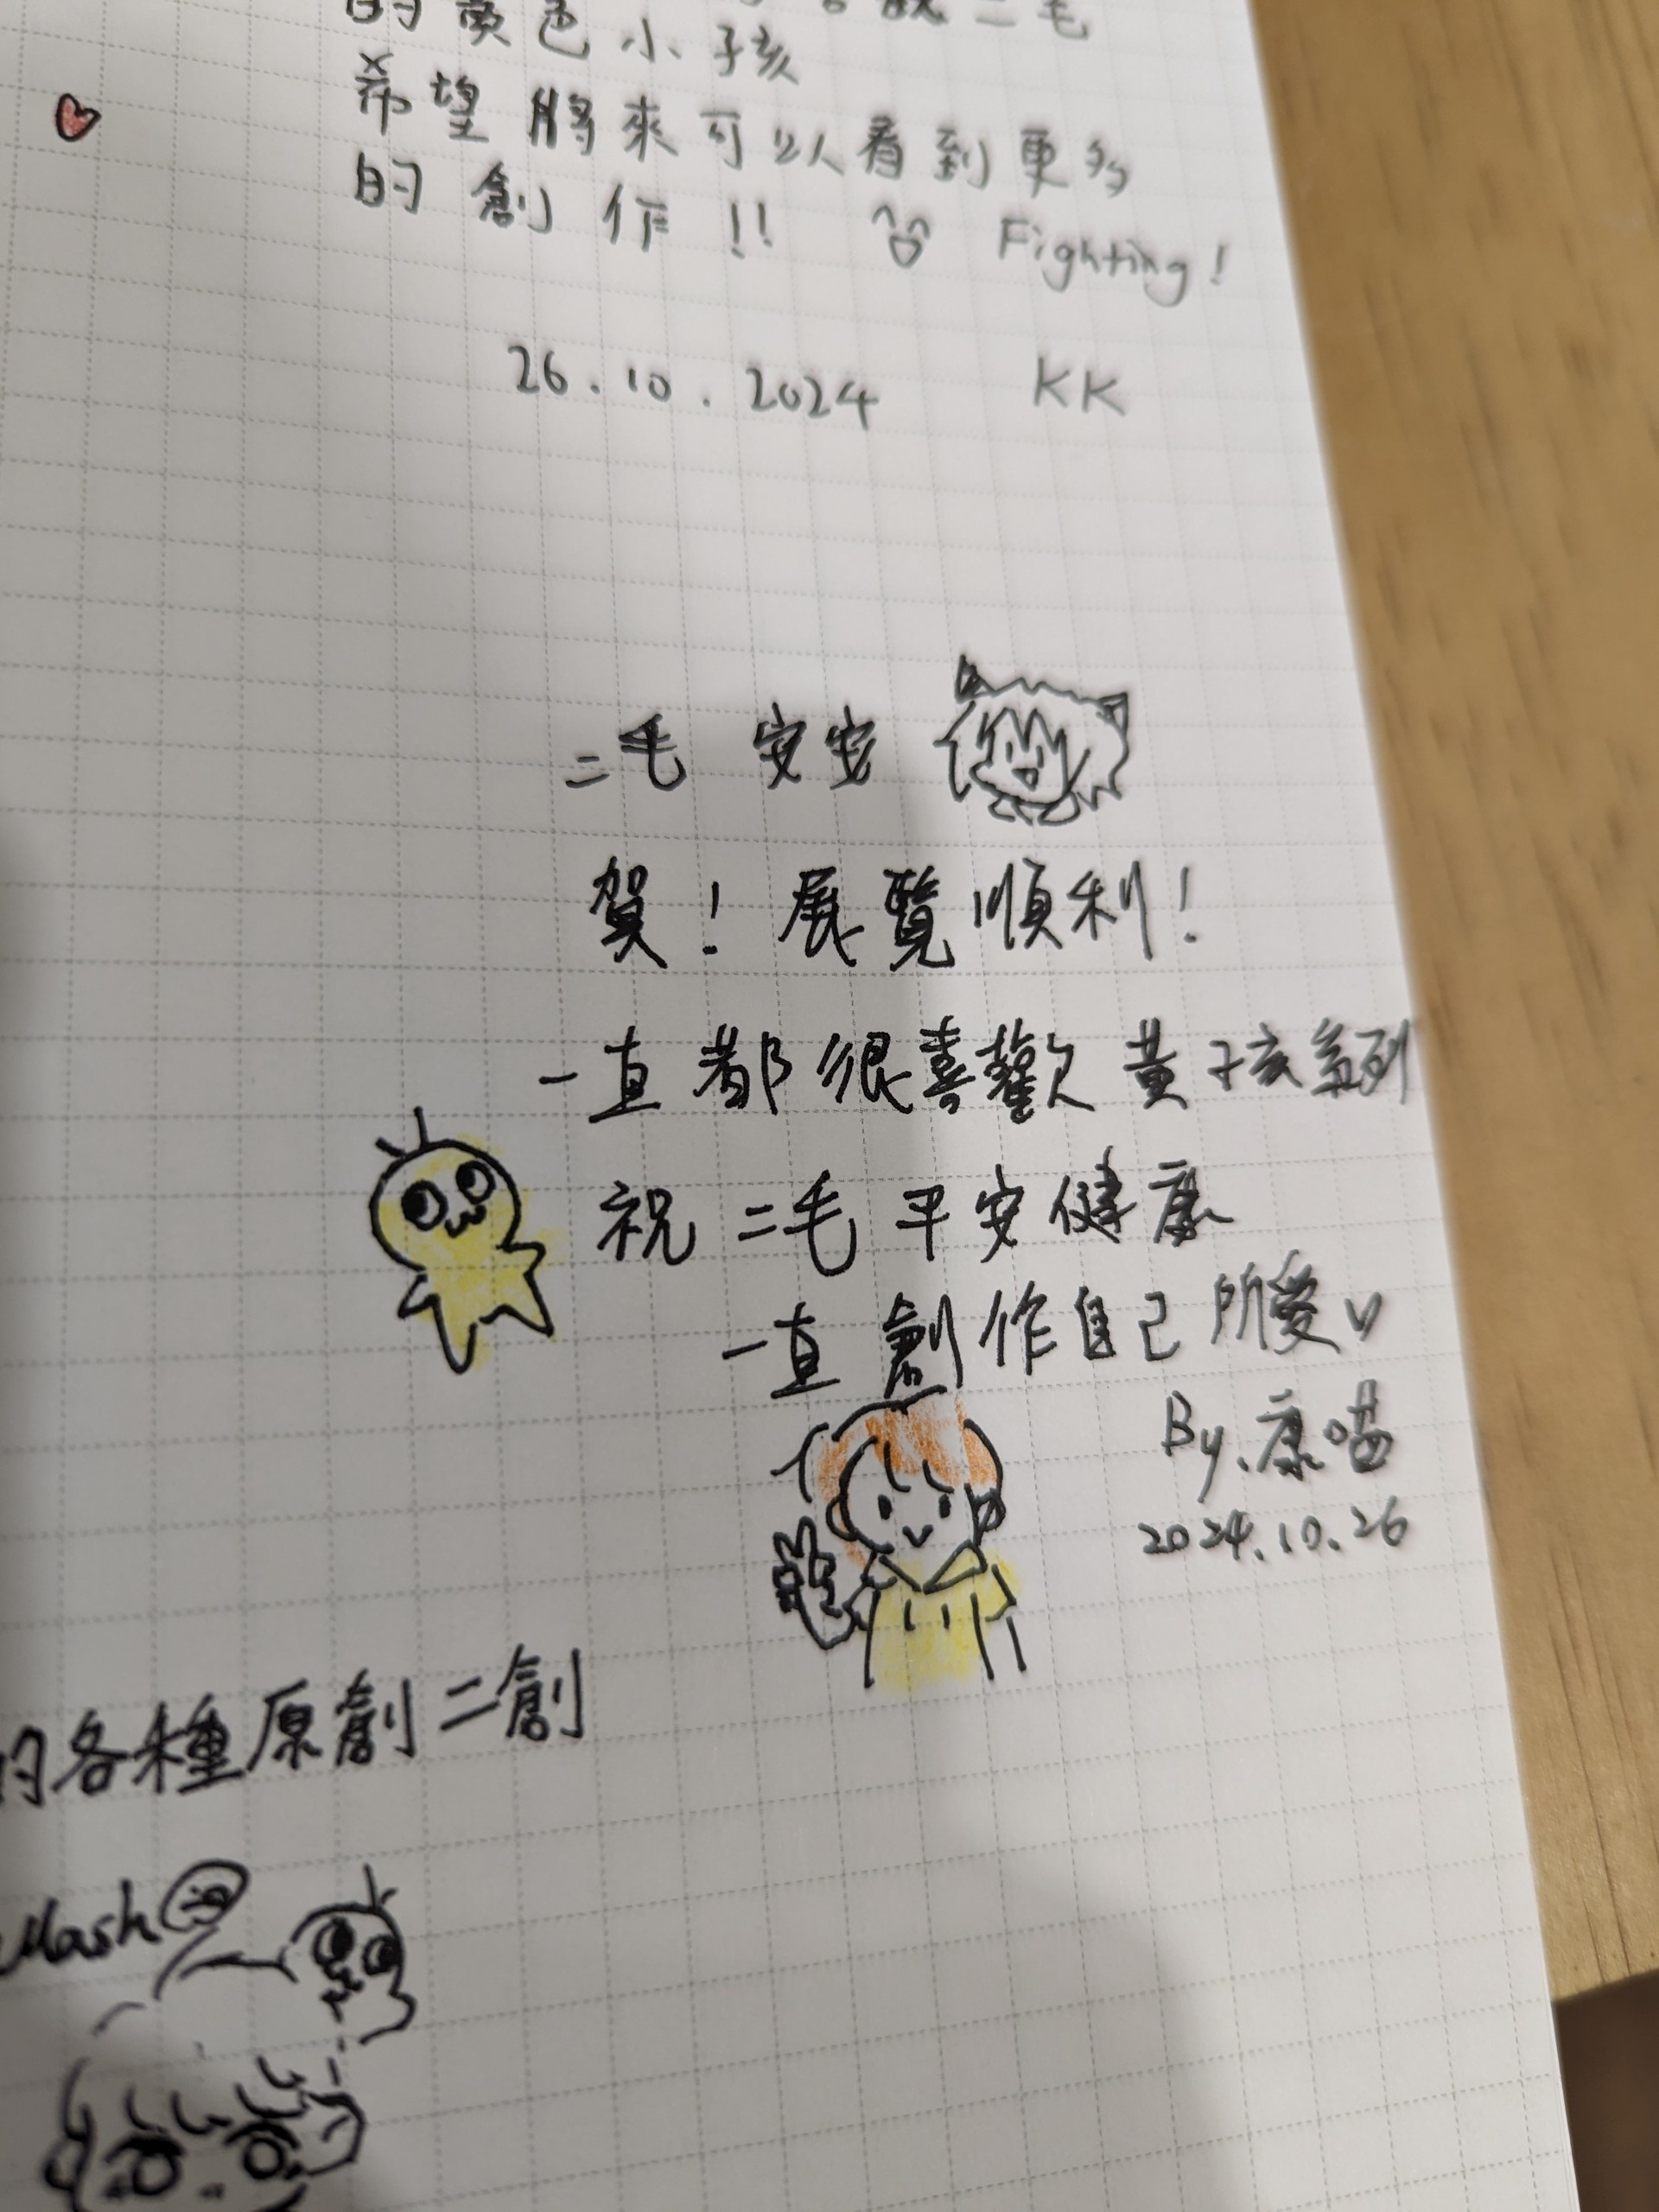 二毛
的黃色小孩
希望將來可以看到更多
的創作!! Fighting!
26.10.2024 KK
二毛 安安
賀！展覽順利！
一直都很喜歡黃孩系列
祝二毛平安健康
一直創作自己所愛
By.康喵
2024.10.26
的各種原創二創
Mash